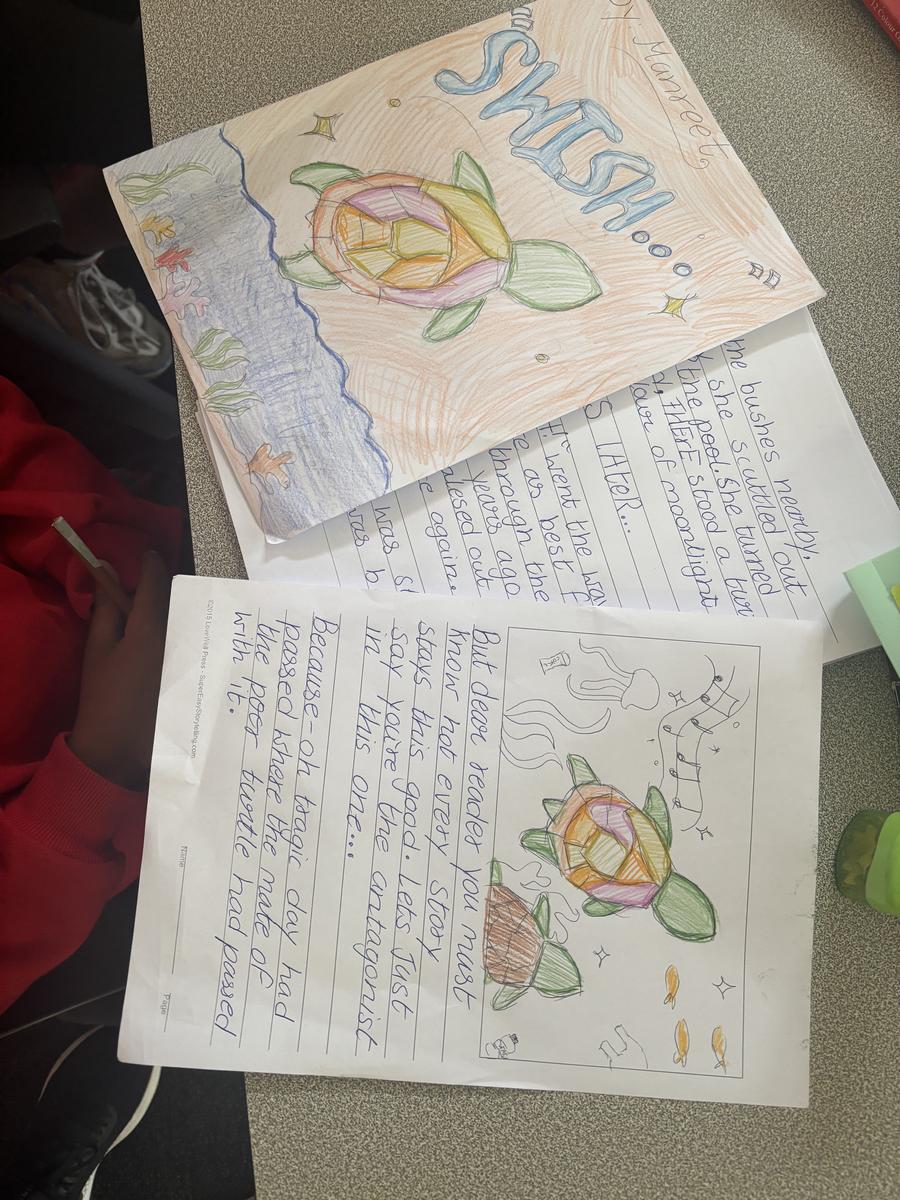 SWISH...
by Manreet
the bushes nearby.
she scuttled out
pool. She turned
THERE stood a
of moonlight
LATER...
went the way
as best
through the
years ago
out
again.
was
was
But dear reader you must
know not every story
stays this good. Lets Just
say you're the antagonist
in this one...
Because-oh tragic day had
passed where the mate of
the poor turtle had passed
with it.
©2015 LoveWell Press - SuperEasyStorytelling.com
Name
Page
12 Colour